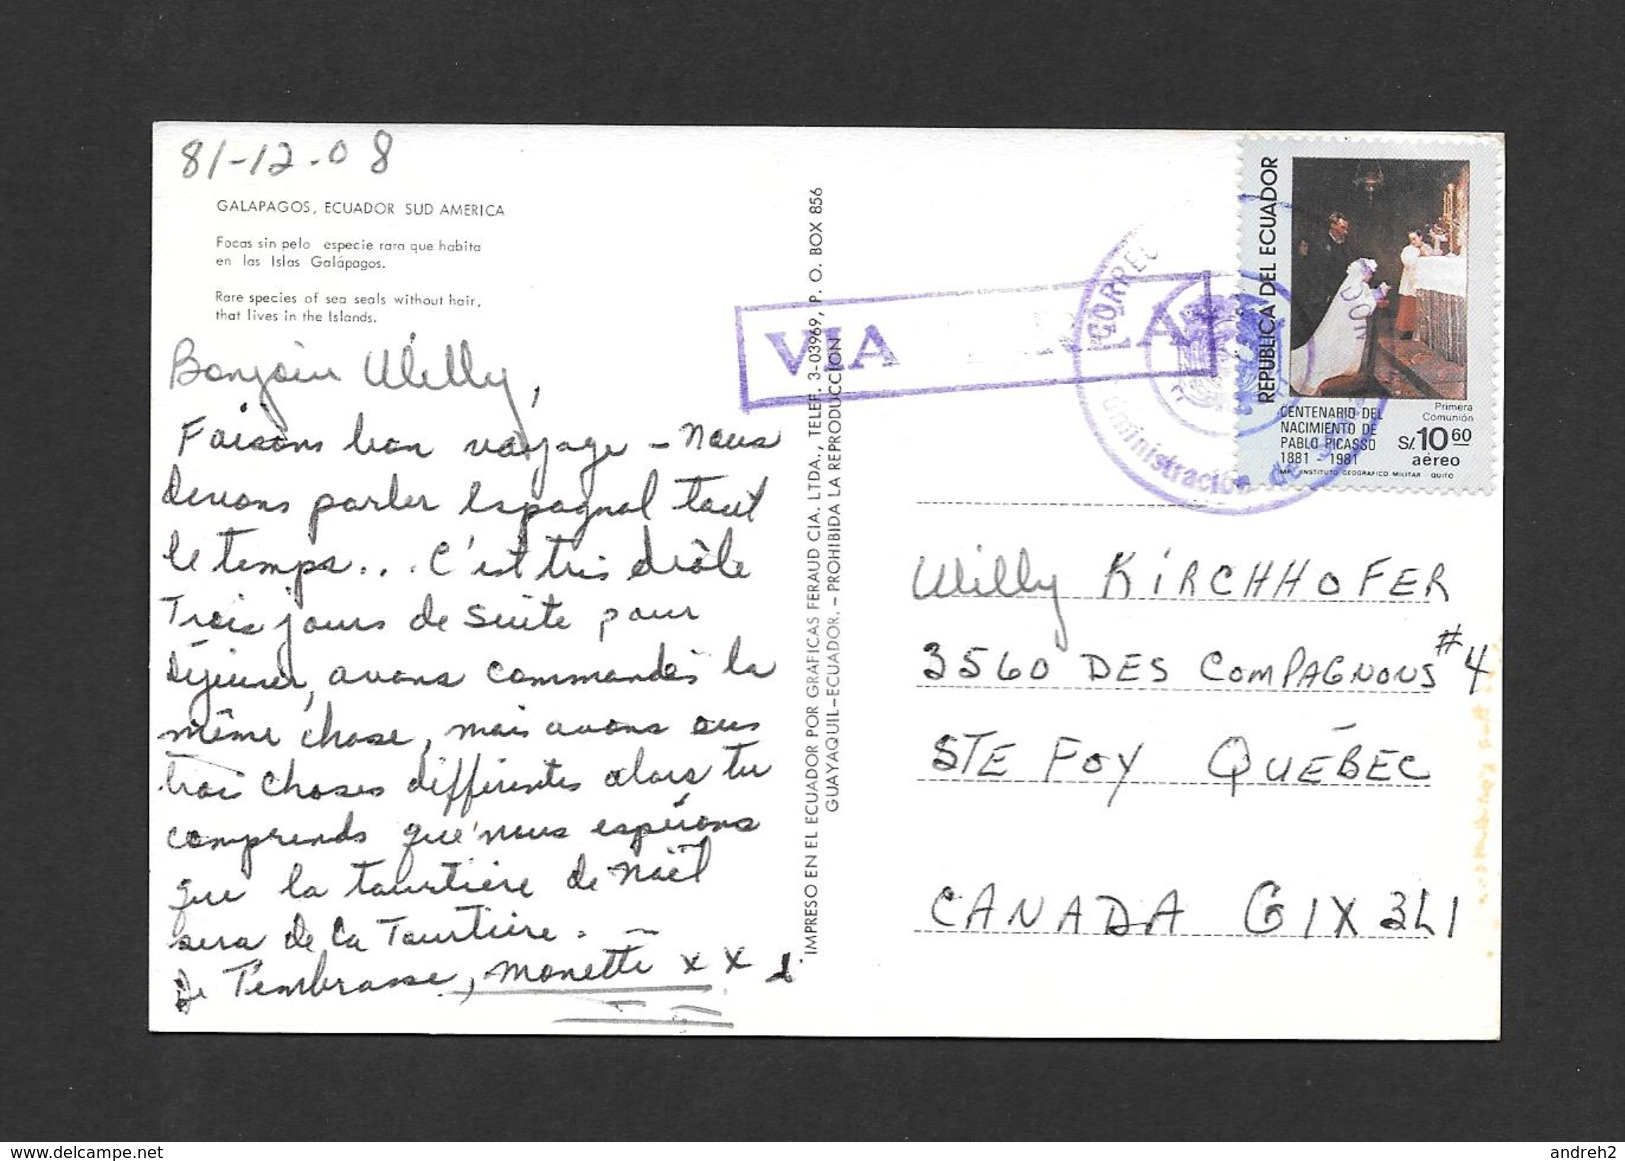 81-12-08
GALAPAGOS, ECUADOR SUD AMERICA
Focas sin pelo especie rara que habita
en las Islas Galápagos.
Rare species of sea seals without hair,
that lives in the Islands.
Bonjour Willy,
Faisons bon voyage - Nous
devons parler espagnol tout
le temps... C'est très drôle
Trois jours de suite pour
déjeuner, avons commandés la
même chose, mais avons eus
trois choses différentes alors tu
comprends que nous espérons
que la tourtière de Noël
sera de la Tourtière.
Je T'embrasse, Monette x x
IMPRESO EN EL ECUADOR POR GRAFICAS FERAUD CIA. LTDA., TELEF. 3-03969, P. O. BOX 856
GUAYAQUIL-ECUADOR. - PROHIBIDA LA REPRODUCCION
VIA
CORREO
Administración de
REPUBLICA DEL ECUADOR
Primera
Comunión
CENTENARIO DEL
NACIMIENTO DE
PABLO PICASSO
1881 - 1981
S/. 10 60
aéreo
IMP. INSTITUTO GEOGRAFICO MILITAR QUITO
Willy KIRCHHOFER
3560 DES COMPAGNONS #4
STE FOY QUÉBEC
CANADA G1X 3L1
andreh2